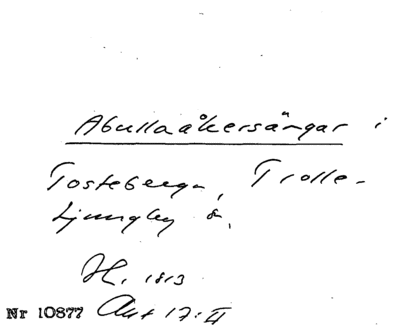 Abullaåkersängar i
Tosteberga, Trolle-
Ljungby s.
H. 1813
Nr 10877 Akt 17:II